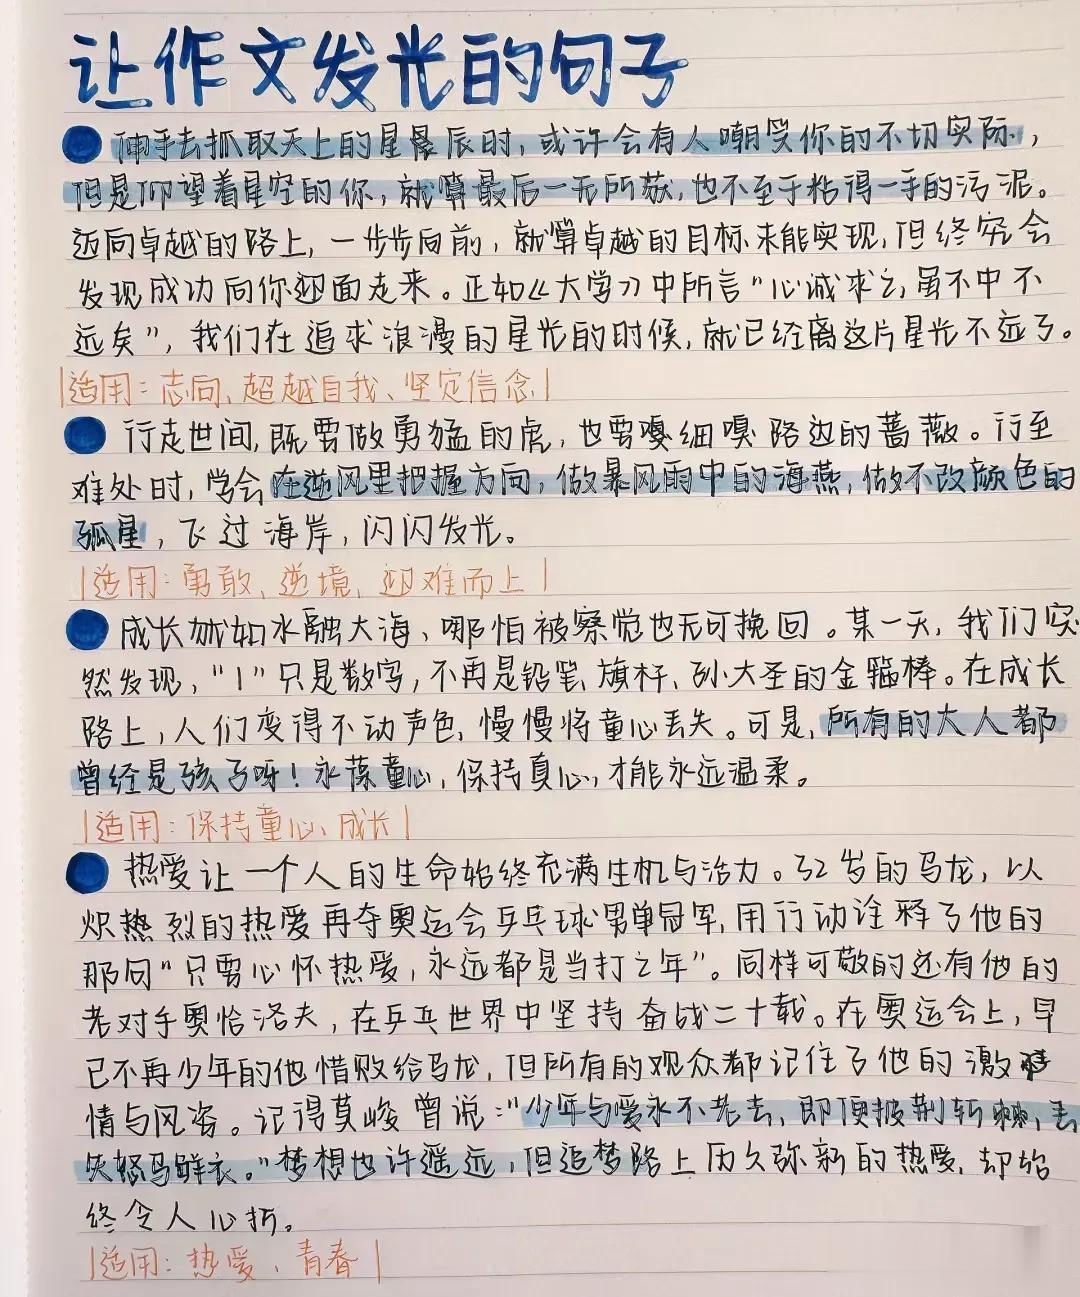 让作文发光的句子
伸手去抓取天上的星辰时，或许会有人嘲笑你的不切实际，
但是仰望着星空的你，就算最后一无所获，也不至于粘得一手的污泥。
迈向卓越的路上，一步步向前，就算卓越的目标未能实现，但终究会
发现成功向你迎面走来。正如《大学》中所言"心诚求之，虽不中不
远矣"，我们在追求浪漫的星光的时候，就已经离这片星光不远了。
|适用：志向、超越自我、坚定信念|
行走世间，既要做勇猛的虎，也要嗅细嗅路边的蔷薇。行至
难处时，学会在逆风里把握方向，做暴风雨中的海燕，做不改颜色的
孤星，飞过海岸，闪闪发光。
|适用：勇敢、逆境、迎难而上|
成长就如水融大海，哪怕被察觉也无可挽回。某一天，我们突
然发现，"1"只是数字，不再是铅笔、旗杆、孙大圣的金箍棒。在成长
路上，人们变得不动声色，慢慢将童心丢失。可是，所有的大人都
曾经是孩子呀！永葆童心，保持真心，才能永远温柔。
|适用：保持童心、成长|
热爱让一个人的生命始终充满生机与活力。32岁的马龙，以
炽热烈的热爱再夺奥运会乒乓球男单冠军，用行动诠释了他的
那问"只要心怀热爱，永远都是当打之年"。同样可敬的还有他的
老对手奥恰洛夫，在乒乓世界中坚持奋战二十载。在奥运会上，早
已不再少年的他惜败给马龙，但所有的观众都记住了他的激
情与风姿。记得莫峻曾说："少年与爱永不老去，即便披荆斩棘，丢
失怒马鲜衣。"梦想也许遥远，但追梦路上历久弥新的热爱，却始
终令人心折。
|适用：热爱、青春|